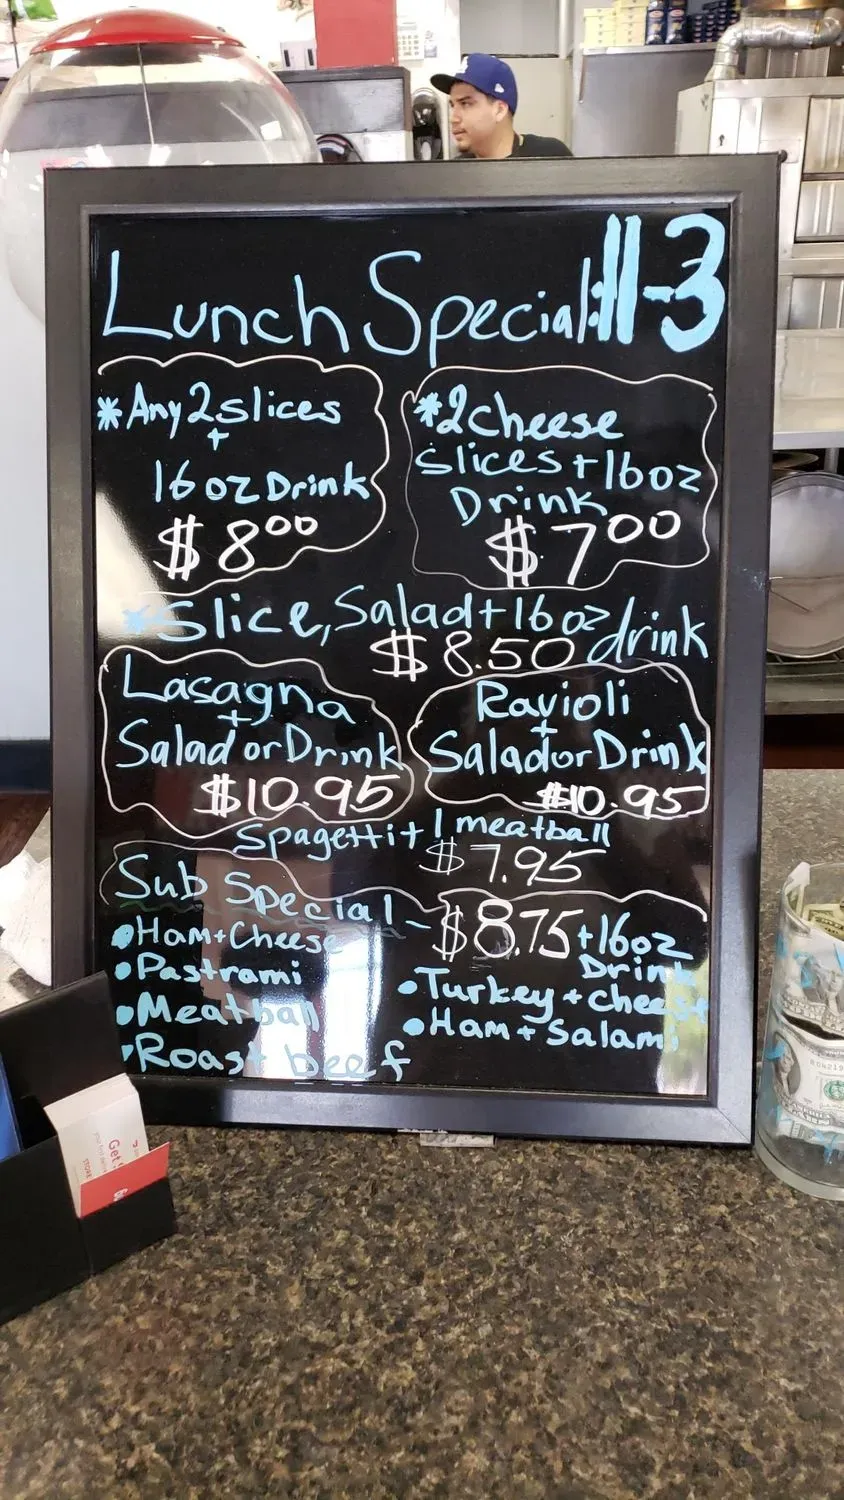 Lunch Special: 11-3
*Any 2 slices
+
16 oz Drink
$8.00
*2 cheese
slices + 16 oz
Drink
$7.00
*Slice, Salad + 16 oz drink
$8.50
Lasagna
+
Salad or Drink
$10.95
Ravioli
+
Salad or Drink
$10.95
Spagetti + 1 meatball
$7.95
Sub Special - $8.75 + 16 oz
Drink
• Ham + Cheese
• Pastrami
• Meatball
• Roast beef
• Turkey + cheese
• Ham + Salami
Get
STORE